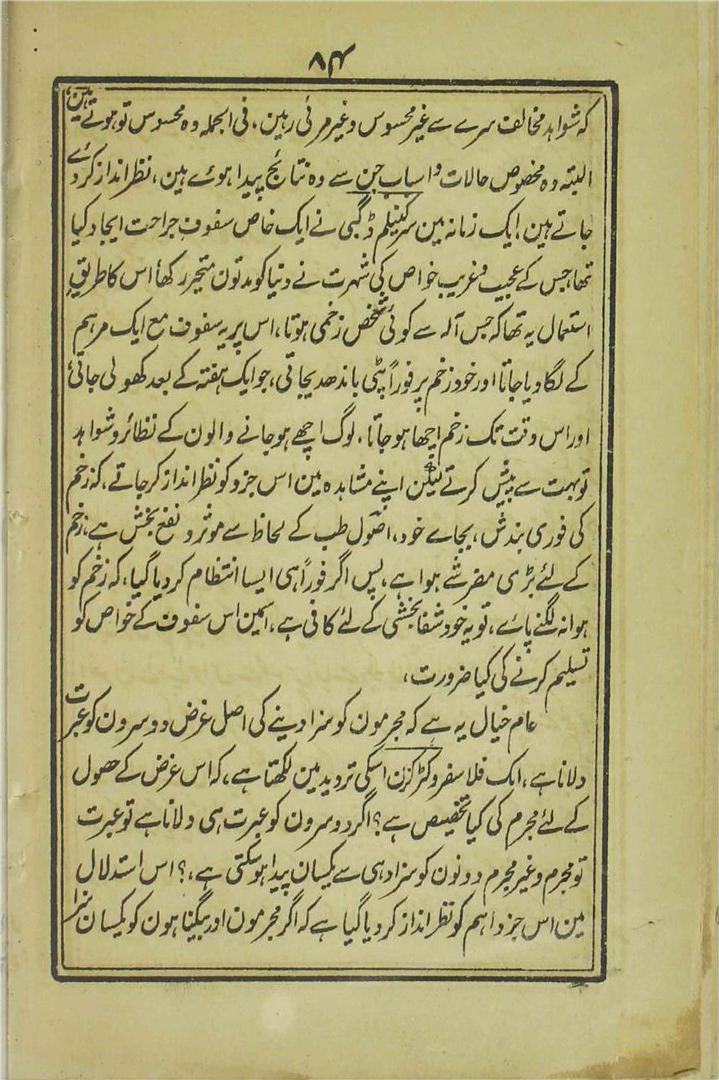 ۸۴
کہ شواہد مخالف سرے سے غیر محسوس و غیر مرئی رہین، فی الجملہ وہ محسوس تو ہوتے ہین،
البتہ وہ مخصوص حالات و اسباب جن سے وہ نتائج پیدا ہوئے ہین، نظر انداز کردئے
جاتے ہین! ایک زمانہ مین سر کنیلم ڈگبی نے ایک خاص سفوف جراحت ایجاد کیا
تھا جس کے عجیب و غریب خواص کی شہرت نے دنیا کو مدتون متحیر رکھا اس کا طریقِ
استعمال یہ تھا کہ جس آلہ سے کوئی شخص زخمی ہوتا، اس پر یہ سفوف مع ایک مرہم
کے لگا دیا جاتا اور خود زخم پر فوراً پٹی باندھ دیجاتی، جو ایک ہفتہ کے بعد کھولی جاتی
اور اس وقت تک زخم اچھا ہو جاتا، لوگ اچھے ہو جانے والون کے نظائر و شواہد
تو بہت سے پیش کرتے لیکن اپنے مشاہدہ مین اس جزو کو نظر انداز کر جاتے، کہ زخم
کی فوری بندش، بجاے خود، اصول طب کے لحاظ سے موثر و نفع بخش ہے، زخم
کے لئے بڑی مضر شے ہوا ہے، پس اگر فوراً ہی ایسا انتظام کر دیا گیا، کہ زخم کو
ہوا نہ لگنے پاے، تو یہ خود شفا بخشی کے لئے کافی ہے، اسمین اس سفوف کے خواص کو
تسلیم کرنے کی کیا ضرورت،
عام خیال یہ ہے کہ مجرمون کو سزا دینے کی اصل غرض دوسرون کو عبرت
دلانا ہے، ایک فلاسفر وکٹر کزن اسکی تردید مین لکھتا ہے، کہ اس غرض کے حصول
کے لئے مجرم کی کیا تخصیص ہے؟ اگر دوسرون کو عبرت ہی دلانا ہے تو عبرت
تو مجرم و غیر مجرم دونون کو سزا دہی سے یکسان پیدا ہو سکتی ہے،؟ اس استدلال
مین اس جزو اہم کو نظر انداز کر دیا گیا ہے کہ اگر مجرمون اور بیگناہون کو یکسان سزا